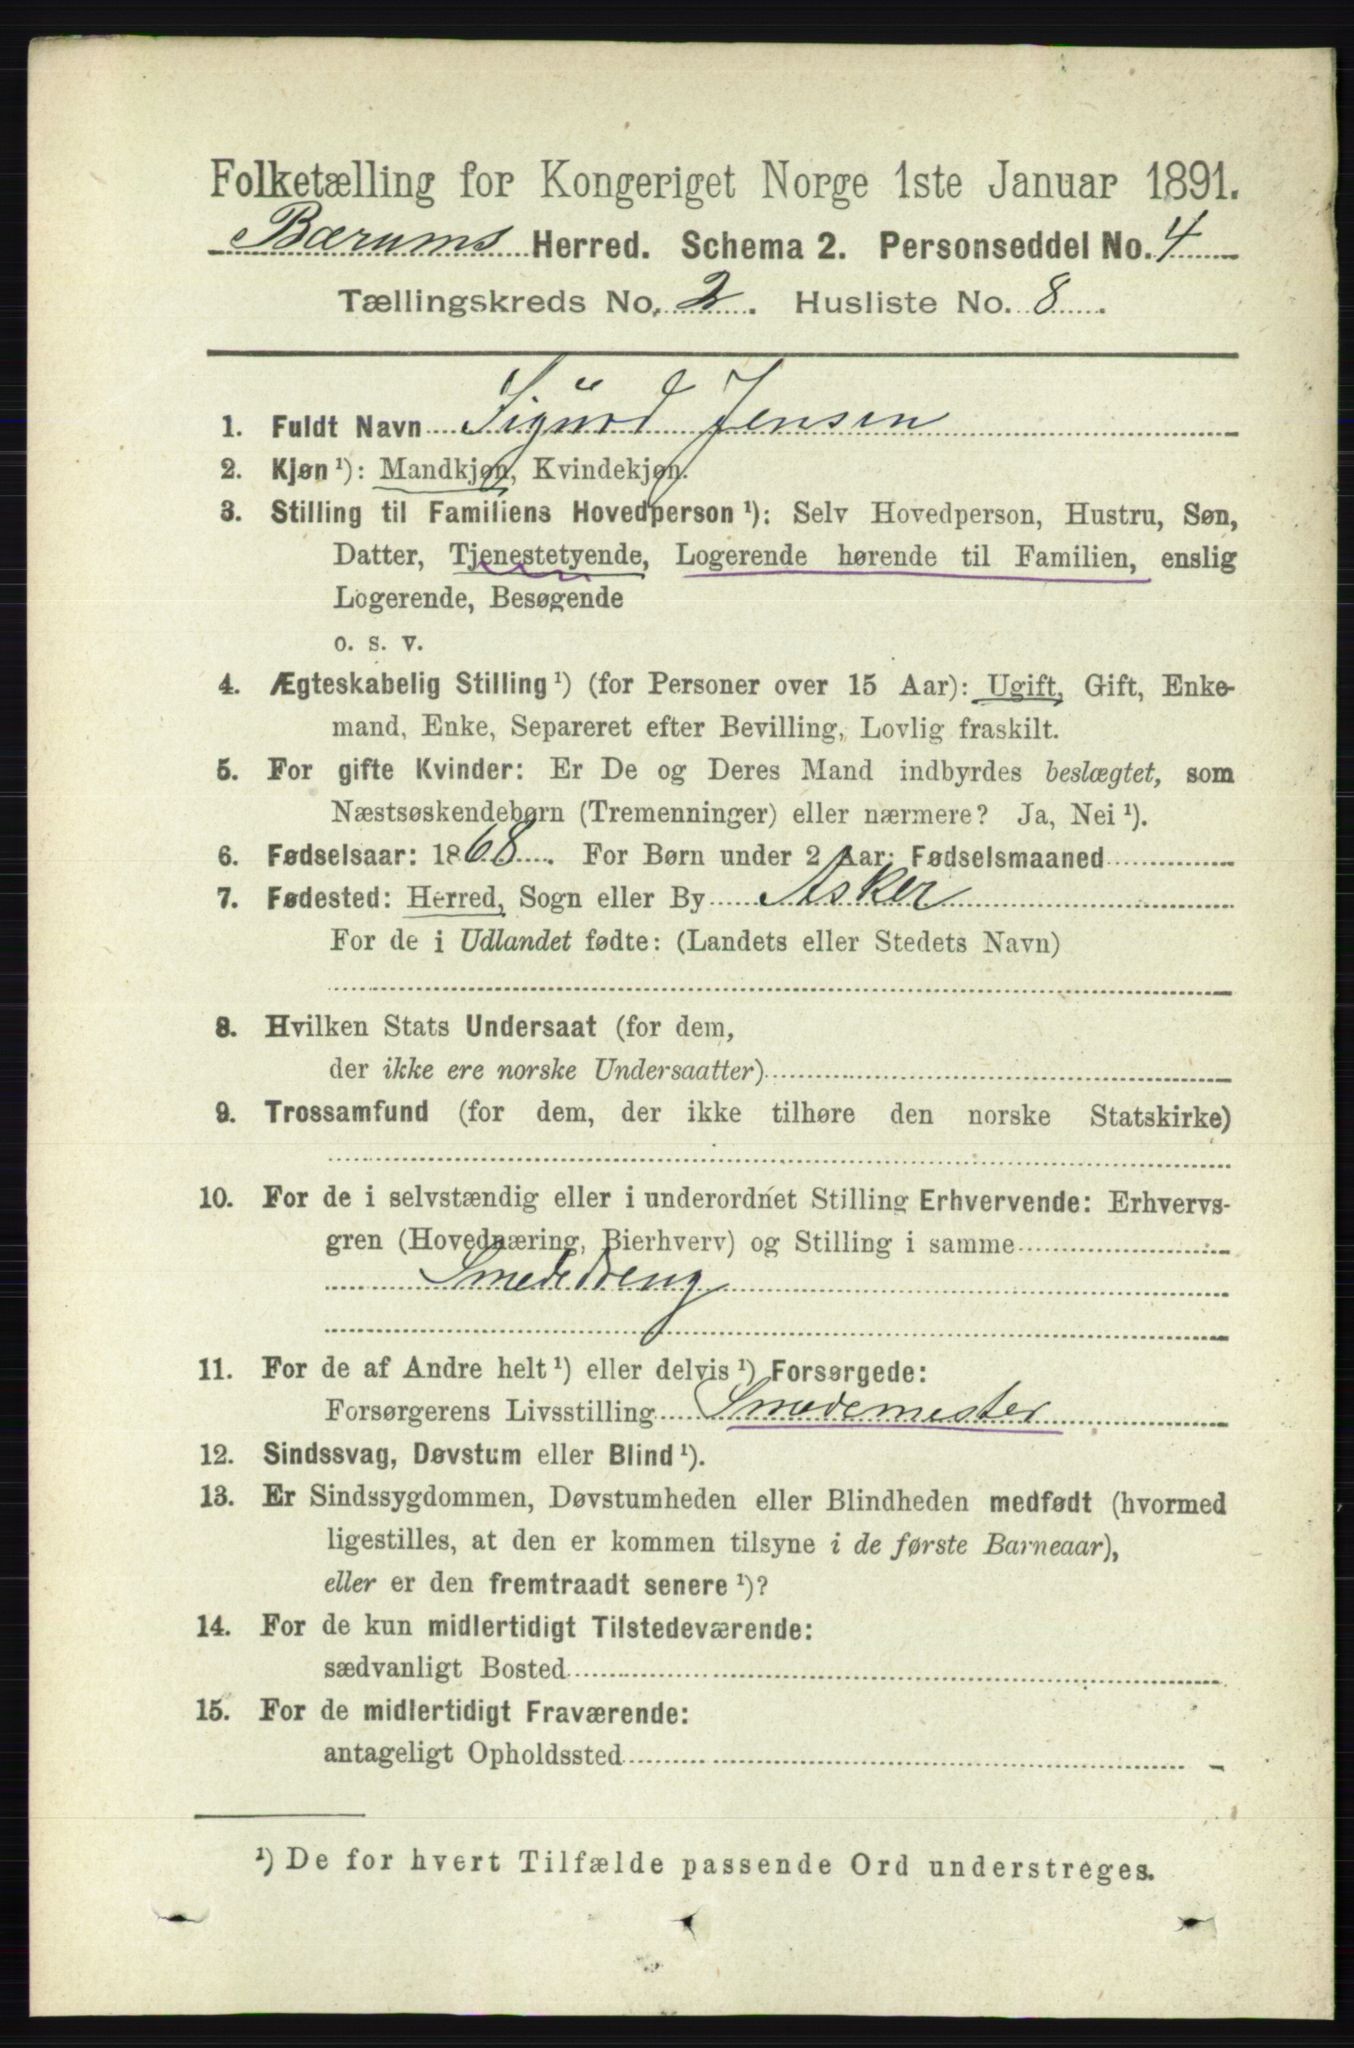 Folketælling for Kongeriget Norge 1ste Januar 1891.
Bærums Herred. Schema 2. Personseddel No. 4
Tællingskreds No. 2. Husliste No. 8.
1. Fuldt Navn Sigurd Jensen
2. Kjøn¹): Mandkjøn, Kvindekjøn.
3. Stilling til Familiens Hovedperson¹): Selv Hovedperson, Hustru, Søn,
Datter, Tjenestetyende, Logerende hørende til Familien, enslig
Logerende, Besøgende
o. s. v.
4. Ægteskabelig Stilling¹) (for Personer over 15 Aar): Ugift, Gift, Enke-
mand, Enke, Separeret efter Bevilling, Lovlig fraskilt.
5. For gifte Kvinder: Er De og Deres Mand indbyrdes beslægtet, som
Næstsøskendebørn (Tremenninger) eller nærmere? Ja, Nei¹).
6. Fødselsaar: 1868. For Børn under 2 Aar: Fødselsmaaned
7. Fødested: Herred, Sogn eller By Asker
For de i Udlandet fødte: (Landets eller Stedets Navn)
8. Hvilken Stats Undersaat (for dem,
der ikke ere norske Undersaatter)
9. Trossamfund (for dem, der ikke tilhøre den norske Statskirke)
10. For de i selvstændig eller i underordnet Stilling Erhvervende: Erhvervs-
gren (Hovednæring, Bierhverv) og Stilling i samme
Smededreng
11. For de af Andre helt¹) eller delvis¹) Forsørgede:
Forsørgerens Livsstilling Smedemester
12. Sindssvag, Døvstum eller Blind¹).
13. Er Sindssygdommen, Døvstumheden eller Blindheden medfødt (hvormed
ligestilles, at den er kommen tilsyne i de første Barneaar),
eller er den fremtraadt senere¹)?
14. For de kun midlertidigt Tilstedeværende:
sædvanligt Bosted
15. For de midlertidigt Fraværende:
antageligt Opholdssted
¹) De for hvert Tilfælde passende Ord understreges.